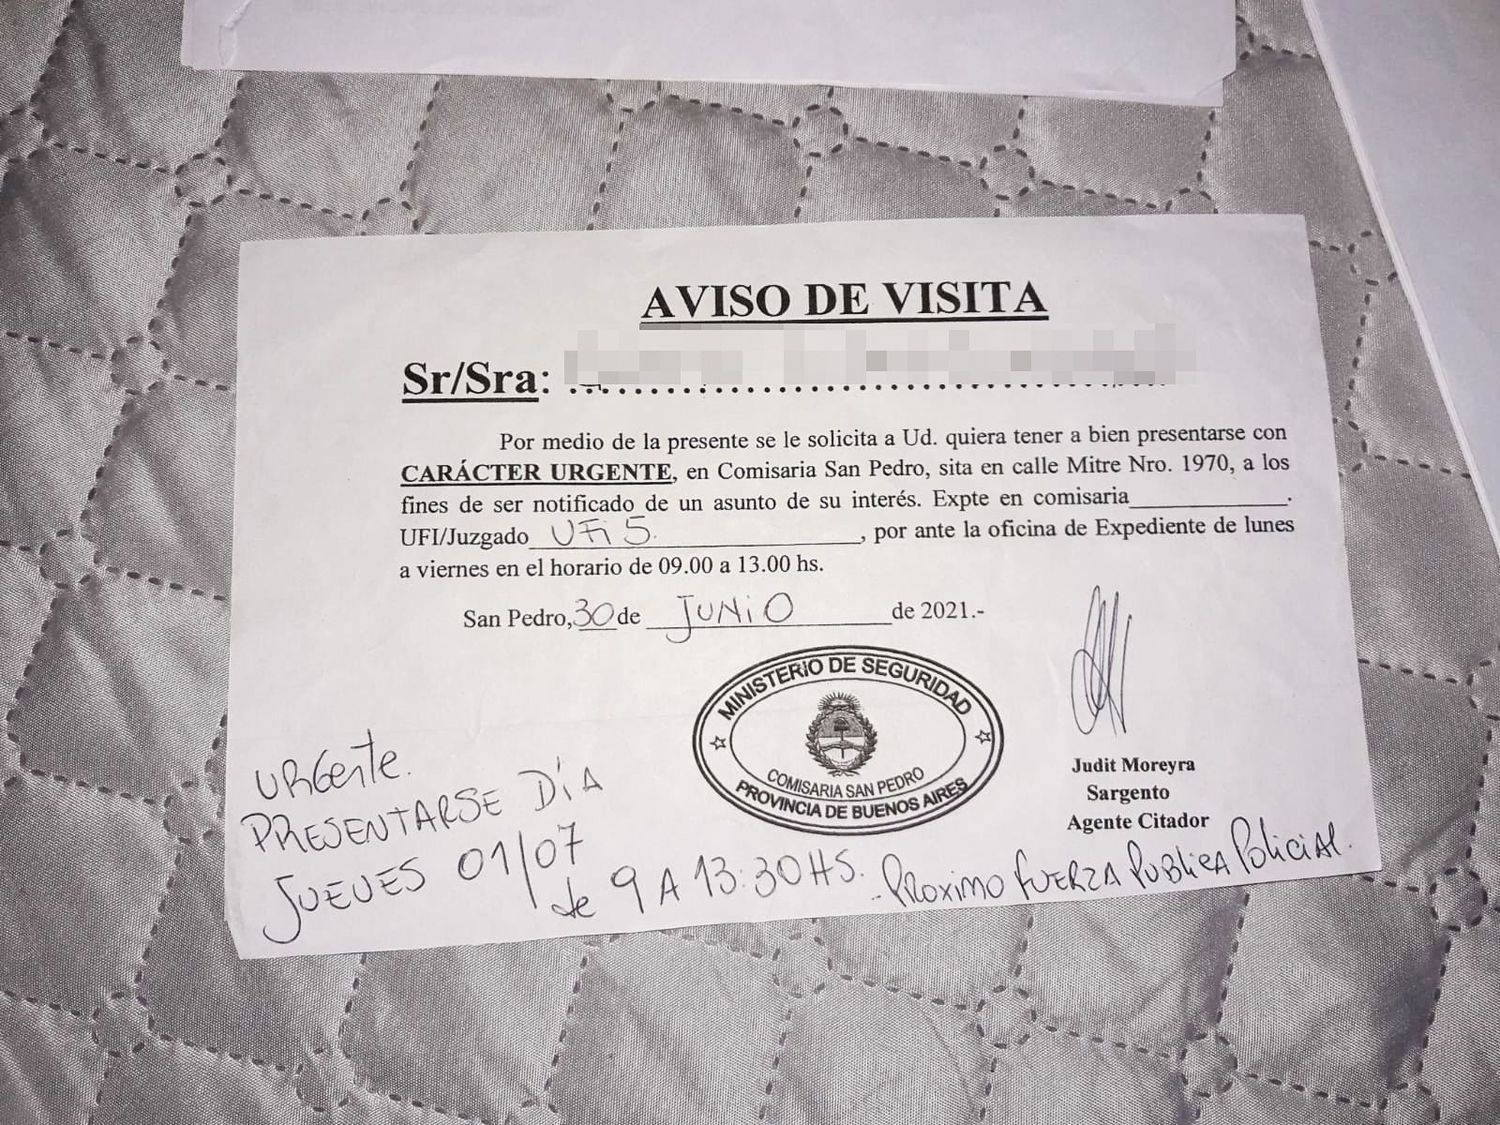 AVISO DE VISITA
Sr/Sra:
Por medio de la presente se le solicita a Ud. quiera tener a bien presentarse con
CARÁCTER URGENTE, en Comisaria San Pedro, sita en calle Mitre Nro. 1970, a los
fines de ser notificado de un asunto de su interés. Expte en comisaria____________.
UFI/Juzgado UFi 5. , por ante la oficina de Expediente de lunes
a viernes en el horario de 09.00 a 13.00 hs.
San Pedro, 30 de JUNiO de 2021.-
MINISTERIO DE SEGURIDAD
COMISARIA SAN PEDRO
PROVINCIA DE BUENOS AIRES
Judit Moreyra
Sargento
Agente Citador
URGente.
PRESENTARSE DÍA
JUEVES 01/07
de 9 A 13:30HS. - PROXIMO FUERZA PUBLICA POLICIAL.